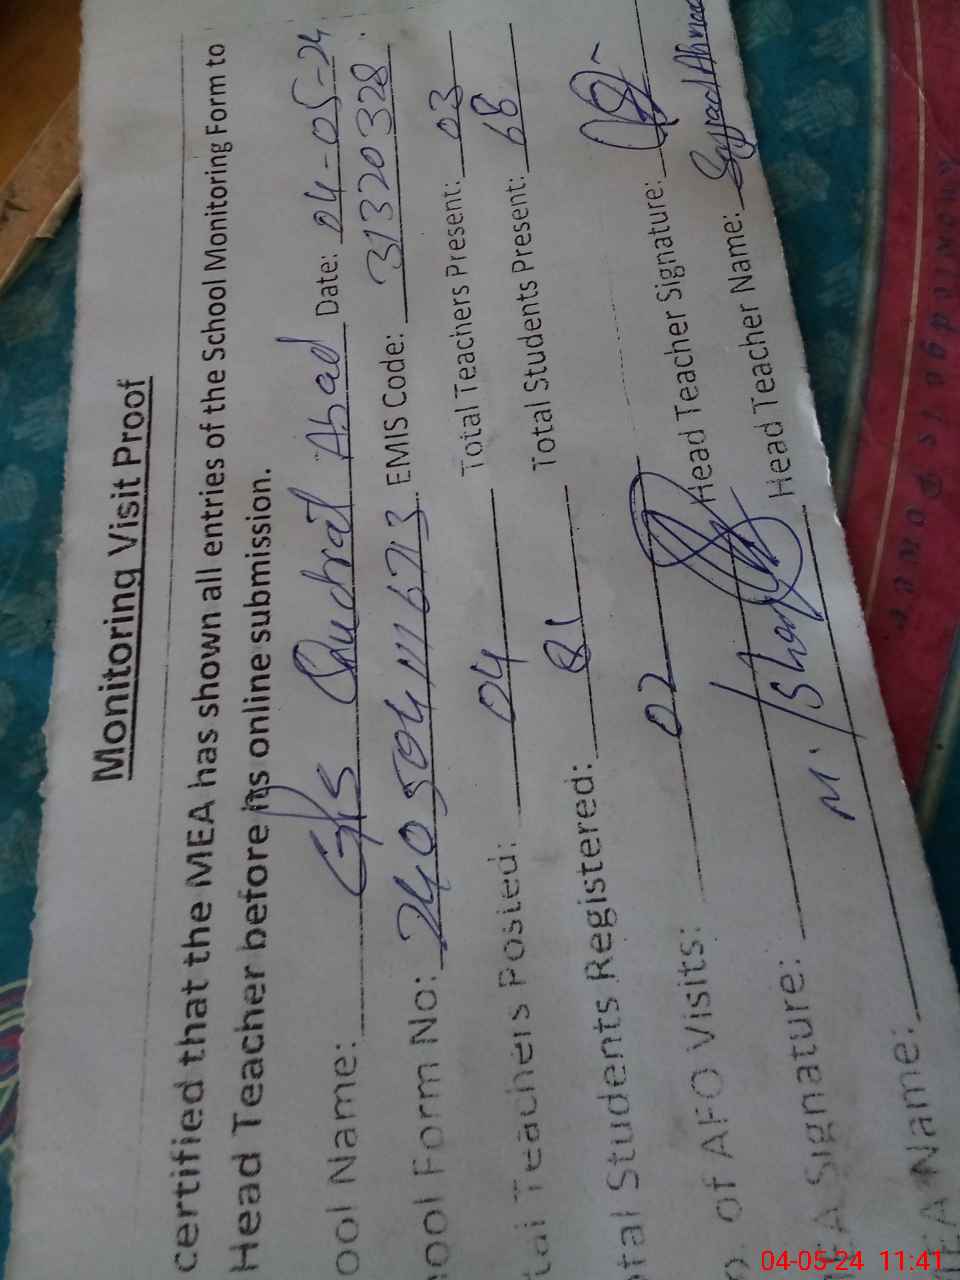 Monitoring Visit Proof
certified that the MEA has shown all entries of the School Monitoring Form to
Head Teacher before its online submission.
ool Name: GPS Qudrat Abad Date: 04-05-24
ool Form No: 2405041116713 EMIS Code: 31320328
tal Teachers Posted: 04 Total Teachers Present: 03
otal Students Registered: 81 Total Students Present: 68
o. of AFO Visits: 02
EA Signature: Head Teacher Signature:
EA Name: M. Ishaq Head Teacher Name: Sajjad Ahmad
04-05-24 11:41